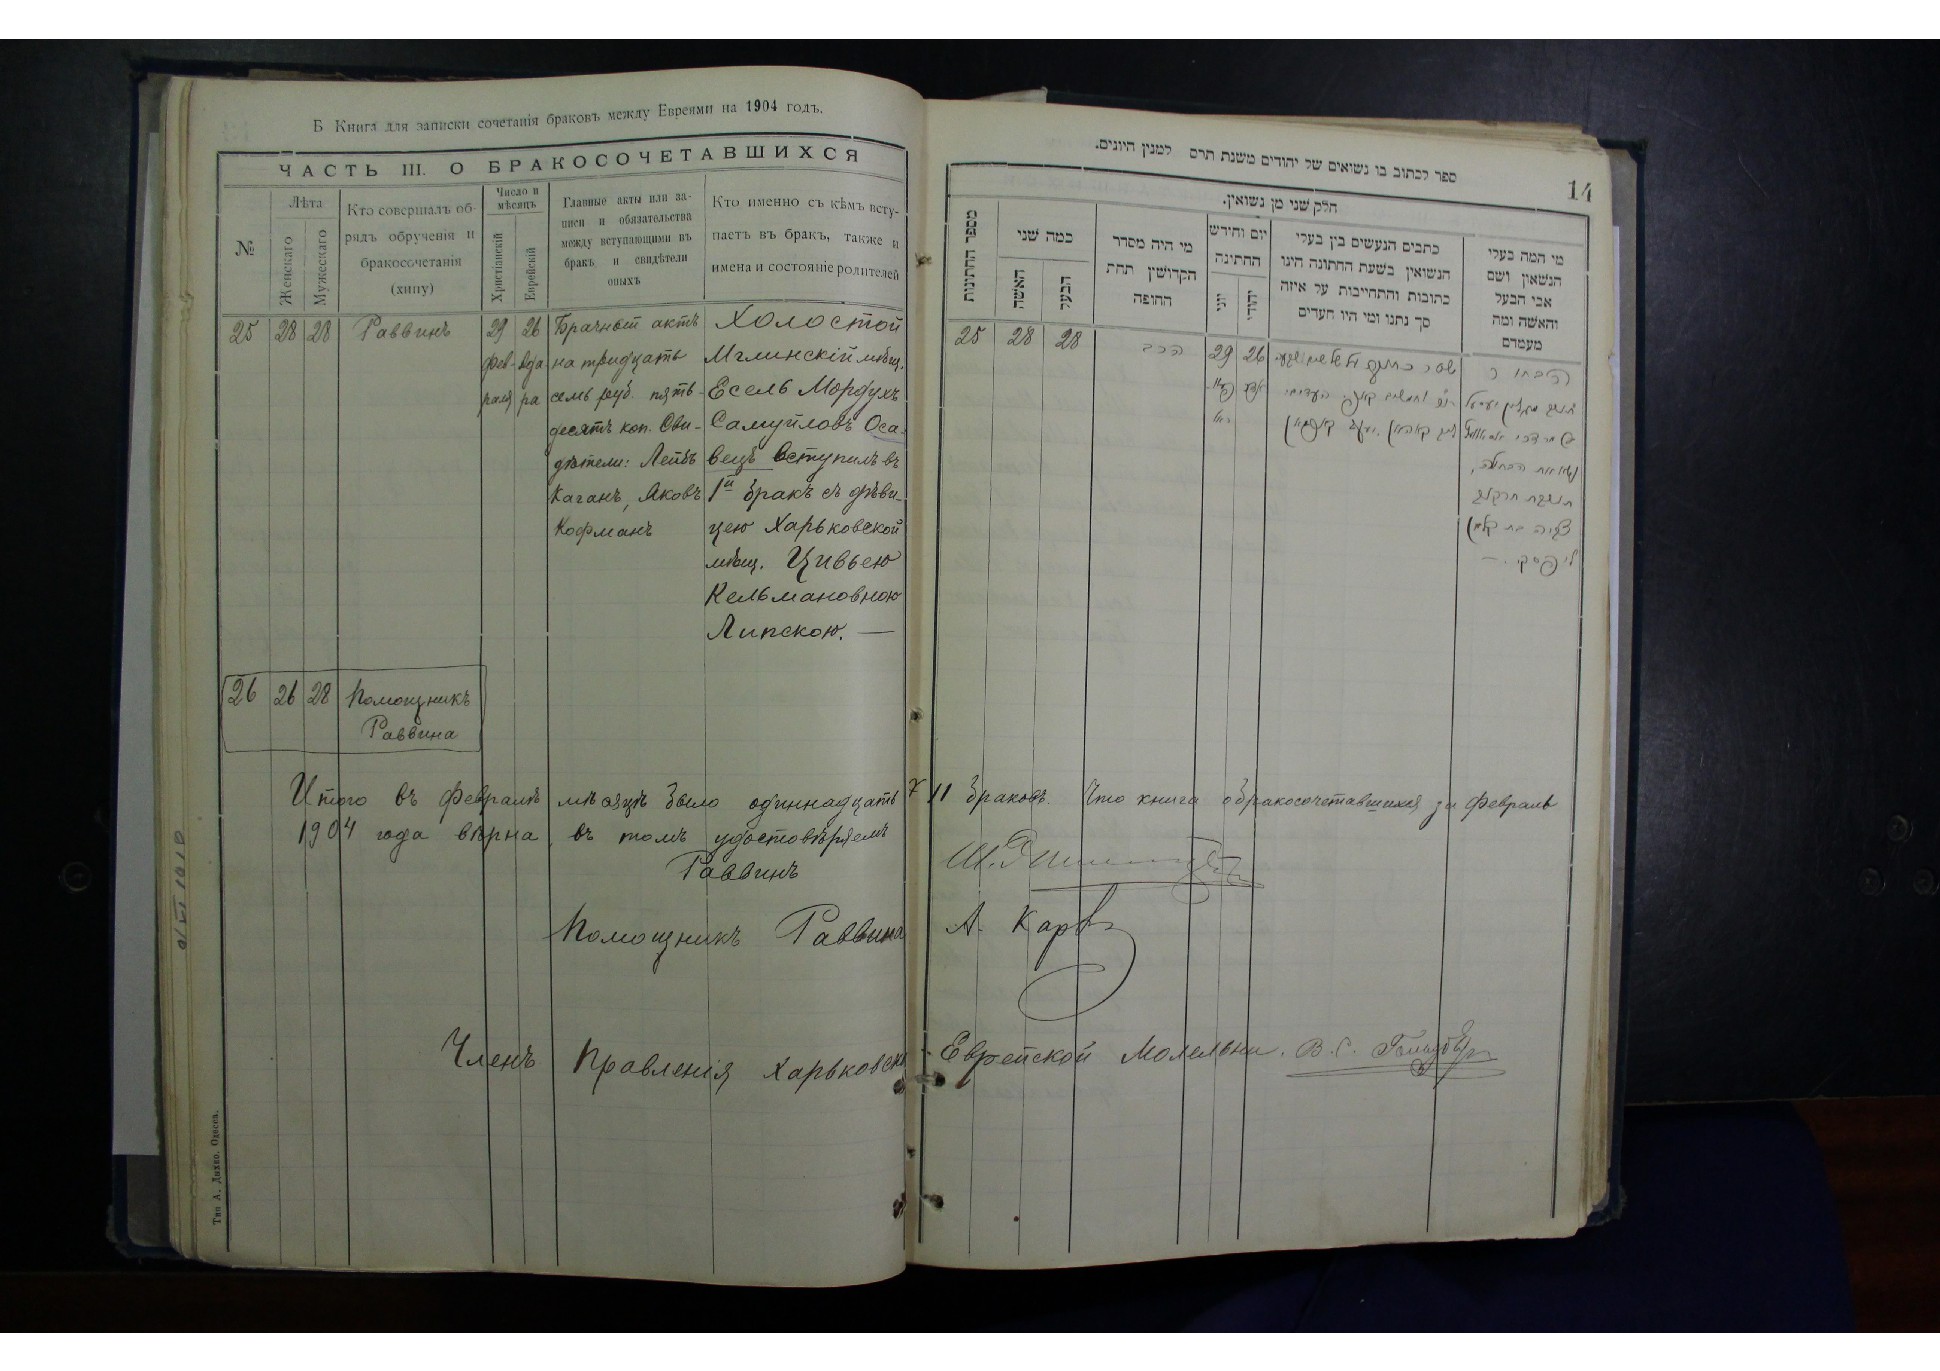 Б Книга для записки сочетанія браковъ между Евреями на 1904 годъ.
ЧАСТЬ III. О БРАКОСОЧЕТАВШИХСЯ
№
Лѣта
Женскаго
Мужескаго
Кто совершалъ об-
рядъ обрученія и
бракосочетанія
(хипу)
Число и
мѣсяцъ
Христіанскій
Еврейскій
Главные акты или за-
писи и обязательства
между вступающими въ
бракъ и свидѣтели
оныхъ
Кто именно съ кѣмъ всту-
паетъ въ бракъ, также и
имена и состояніе родителей
25
28
28
Раввинъ
29
фев-
раля
26
Ада
ра
Брачный актъ
на тридцать
семь руб. пять-
десятъ коп. Сви-
дѣтели: Лейбъ
Каганъ, Яковъ
Кофманъ
Холостой
Мглинскій мѣщ.
Есель Мордухъ
Самуиловъ Оса-
вецъ вступилъ въ
1й бракъ съ дѣви-
цею Харьковской
мѣщ. Цивьею
Кельмановною
Липскою. —
26
26
28
Помощникъ
Раввина
ספר לכתוב בו נשואים של יהודים משנת תרס למנין היונים.
14
חלק שני מן נשואין.
מספר החתונות
כמה שני
האשה
הבעל
מי היה מסדר
הקדושין תחת
החופה
יום וחידש
החתינה
יוני
יהודי
כתבים הנעשים בין בעלי
הנשואין בשעת החתונה הינו
כתובות והתחייבות על איזה
סך נתנו ומי היו העדים
מי המה בעלי
הנשאון ושם
אבי הבעל
והאשה ומה
מעמדם
25
28
28
הרב
29
26
Итого въ февралѣ мѣсяцѣ было одиннадцать 11 браковъ. Что книга о бракосочетавшихся за февраль
1904 года вѣрна, въ томъ удостовѣряемъ
Раввинъ
Помощникъ Раввина А. Карвъ
Членъ Правленія Харьковской Еврейской Молельни. В.С.
Тип А. Дихно. Одесса.